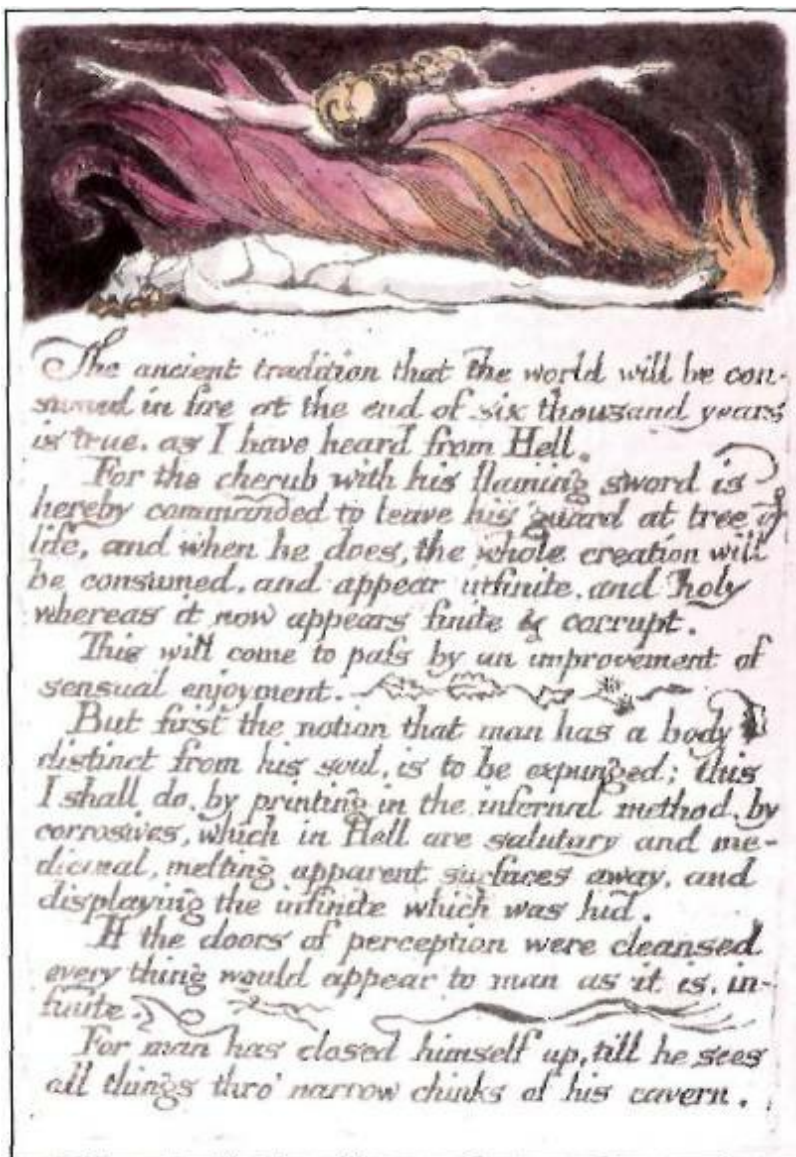 The ancient tradition that the world will be con-
sumed in fire at the end of six thousand years
is true. as I have heard from Hell.
For the cherub with his flaming sword is
hereby commanded to leave his guard at tree of
life, and when he does, the whole creation will
be consumed, and appear infinite, and holy
whereas it now appears finite & corrupt.
This will come to paſs by an improvement of
sensual enjoyment.
But first the notion that man has a body
distinct from his soul, is to be expunged; this
I shall do, by printing in the infernal method, by
corrosives, which in Hell are salutary and me-
dicinal, melting apparent surfaces away, and
displaying the infinite which was hid.
If the doors of perception were cleansed
every thing would appear to man as it is, in-
finite.
For man has closed himself up, till he sees
all things thro' narrow chinks of his cavern.